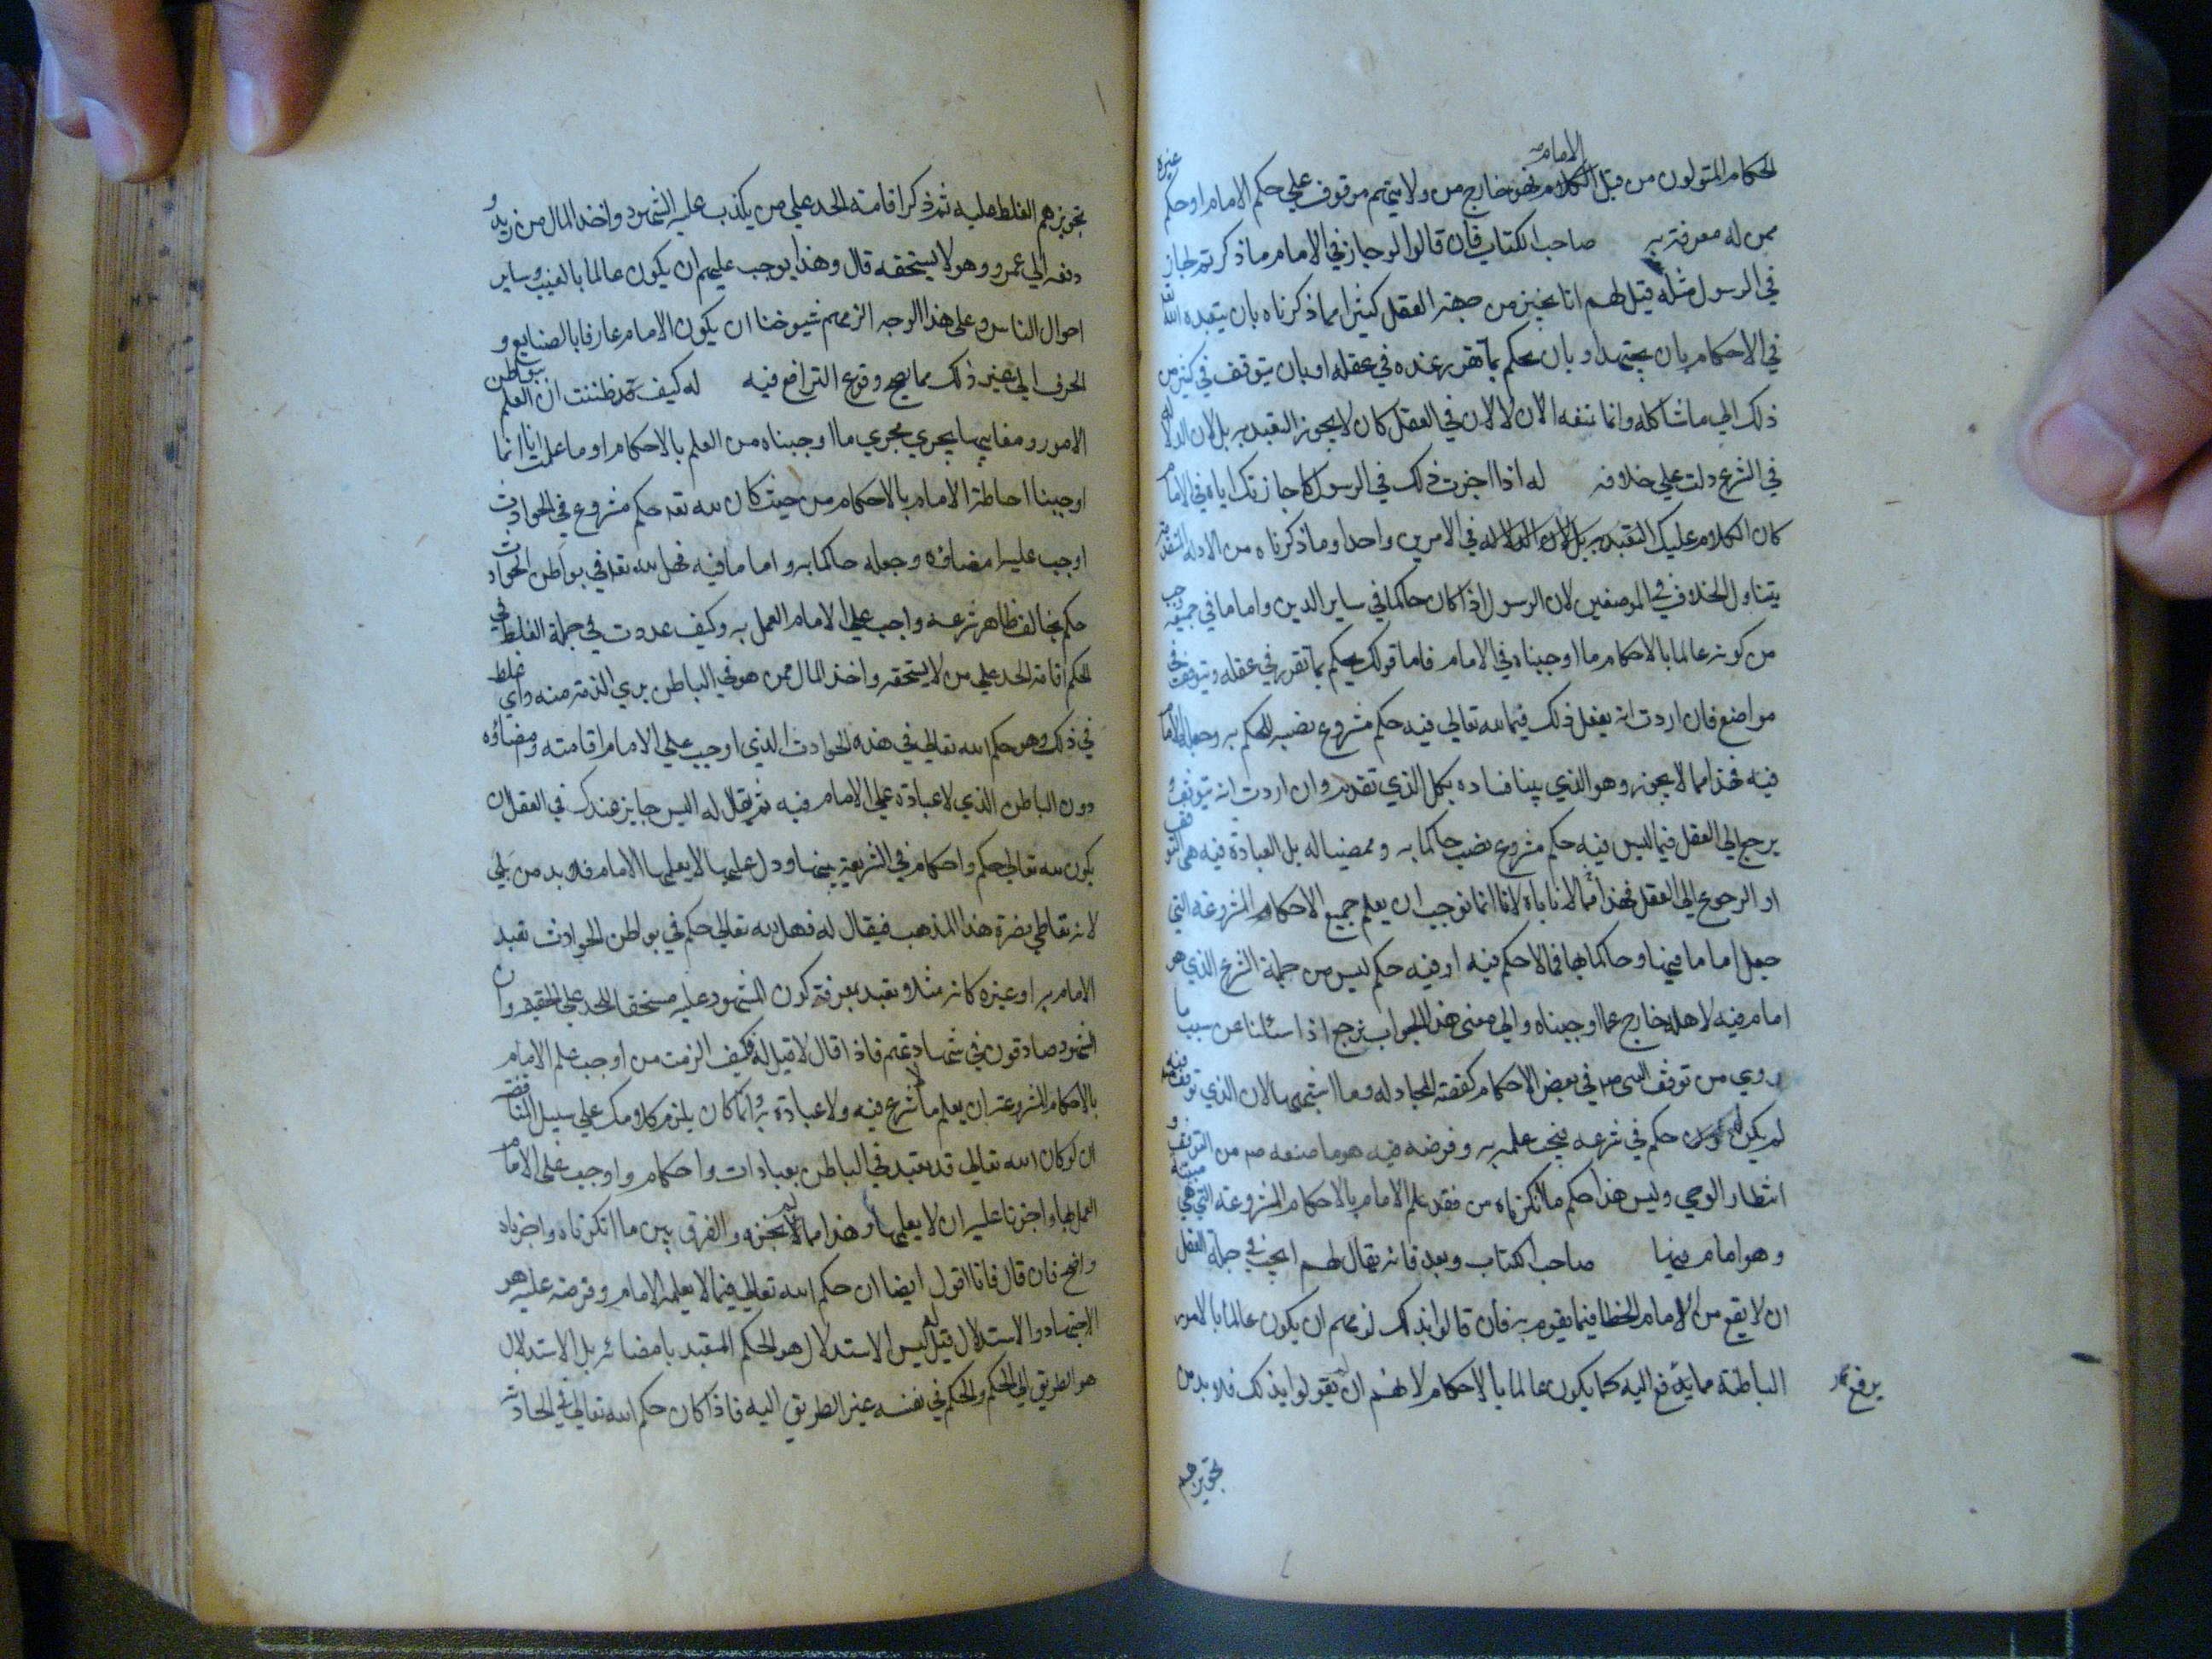 الحكام المتولون من قبل الامام خارج من ولايتهم موقوف علي حكم الامام او حكم غيره
ممن له معرفة به صاحب الكتاب فان قالوا لو جاز في الامام ما ذكرتم لجاز
في الرسول مثله قيل لهم انا نجيز من جهة العقل كثيرا مما ذكرناه بان يتعبده الله تع
في الاحكام بان يجتهد او بان يحكم بما تقرر عنده في عقله او بان يتوقف في كثير من
ذلك الي ما شاكله وانما ننفه الان لا لان في العقل كان لا يجوز التعبد به بل لان الدلاله
في الشرع دلت علي خلافه له اذا اجزت ذلك في الرسول كاجازتك اياه في الامام
كان الكلام عليك في الامرين واحدا وما ذكرناه من الادله المتقدمة
يتناول الخلاف في الموضعين لان الرسول اذا كان حاكما في ساير الدين واماما في جميعه وجب
من كونه عالما بالاحكام ما اوجبناه في الامام فاما قولك يحكم بما تقرر في عقله ويتوقف في
مواضع فان اردت انه يفعل ذلك فيما لله تعالي فيه حكم مشروع نصبه للحكم به وجعله الامام
فيه فهذا مما لا يجوز وهو الذي بينا فساده بكل الذي تقدم وان اردت انه يتوقف و
يرجع الي العقل فيما ليس فيه حكم مشروع نصب حاكما به وممضيا له بل العبادة فيه هي التوقف
او الرجوع الي العقل فهذا مما لا ناباه لانا انما نوجب ان يعلم جميع الاحكام المشروعة التي
جعل اماما فيها وحاكما بها فما لا حكم فيه او فيه حكم ليس من جملة الشرع الذي هو
امام فيه لاهله خارج عما اوجبناه والي معنى هذا الجواب نرجع اذا سئلنا عن سبب ما
روي من توقف النبي ص في بعض الاحكام كقصة المجادله وما اشبهها لان الذي توقف فيه
لم يكن حكم في شرعه يجب علمه به وفرضه فيه هو ما صنعه ص من التوقف و
انتظار الوحي وليس هذا حكم ما انكرناه من فقد علم الامام بالاحكام المشروعة التي هي مبينة
وهو امام فيها صاحب الكتاب وبعد فانه يقال لهم ايجب في جملة العقل
ان لا يقع من الامام الخطا فيما يقوم به فان قالوا بذلك لزمهم ان يكون عالما بالامور
الباطنة مما يدفع اليه كما يكون عالما بالاحكام لانهم ان لم يقولوا بذلك فلا بد من
يرفع
تجويزهم
تجويزهم الغلط عليه ثم ذكر اقامة الحد علي من يكذب عليه الشهود واخذ المال من زيد و
دفعه الي عمرو وهو لا يستحقه قال وهذا يوجب عليهم ان يكون عالما بالغيب وساير
احوال الناس وعلى هذا الوجه الزمهم شيوخنا ان يكون الامام عارفا بالصنايع و
الحرف الي غير ذلك مما يصح وقوع الترافع فيه له كيف قد ظننت ان العلم ببواطن
الامور ومغايبها يجري مجري ما اوجبناه من العلم بالاحكام او ما علمت انا انما
اوجبنا احاطة الامام بالاحكام من حيث كان لله تع حكم مشروع في الحوادث
اوجب عليه امضاؤه وجعله حاكما به واماما فيه فهل لله تع في بواطن الحوادث
حكم يخالف ظاهر شرعه واجب علي الامام العمل به وكيف عددت في جملة الغلط في
الحكم اقامة الحد علي من لا يستحقه واخذ المال ممن هو في الباطن بري الذمة منه واي غلط
في ذلك وهو حكم الله تعالي في هذه الحوادث الذي اوجب علي الامام اقامته ومضاؤه
دون الباطن الذي لا عبادة علي الامام فيه ثم يقال له اليس جايز عندك في العقل ان
يكون لله تعالي حكم واحكام في الشريعة بينها ودل عليها لا يعلمها الامام فلا بد من بلي
لانه تعاطي نصرة هذا المذهب فيقال له فهل لله تعالي حكم في بواطن الحوادث تعبد
الامام به او غيره كانه مثلا تعبد بمعرفة كون المشهود عليه مستحقا للحد علي الحقيقه وان
الشهود صادقون في شهادتهم فاذا قال لا قيل له فكيف الزمت من اوجب علم الامام
بالاحكام المشروعة ان يعلم ما لا شرع فيه ولا عبادة به انما كان يلزم كلامك علي سبيل المناقضة
ان لو كان الله تعالي قد تعبد في الباطن بعبادات واحكام واوجب علي الامام
العمل بها واجزنا عليه ان لا يعلمها وهذا مما لم نجزه والفرق بين ما انكرناه واجزناه
واضح فان قال فانا اقول ايضا ان حكم الله تعالي فيما لا يعلمه الامام وفرضه عليه هو
الاجتهاد والاستدلال قيل له ليس الاستدلال هو الحكم المتعبد بامضائه بل الاستدلال
هو الطريق الي الحكم والحكم في نفسه غير الطريق اليه فاذا كان حكم الله تعالي في الحادثة